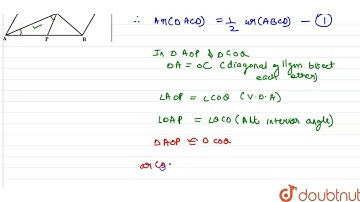 ∴ Ar(Δ ACD) = 1/2 ar(ABCD) — ①
In Δ AOP & Δ COQ
OA = OC (diagonal of ||gm bisect
each other)
∠AOP = ∠COQ (V.O.A)
∠OAP = ∠QCO (Alt interior angle)
Δ AOP ≅ Δ COQ
ar(
A P B
doubtnut